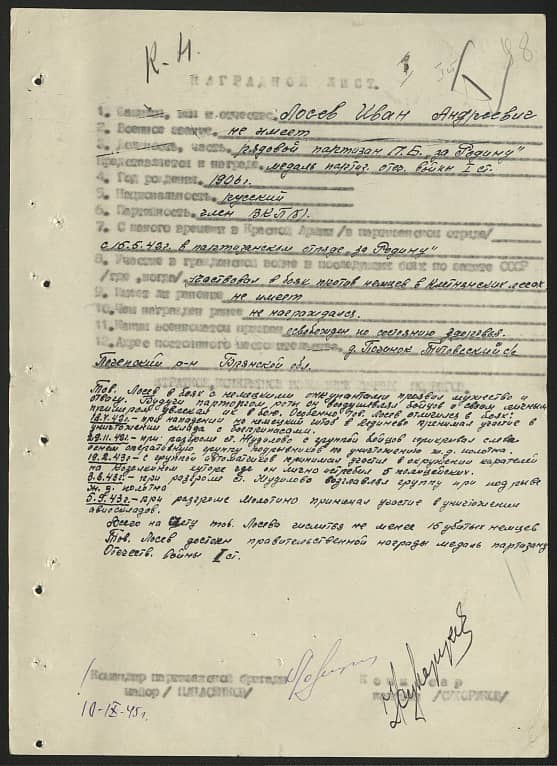 К-Н.
НАГРАДНОЙ ЛИСТ.
1. Фамилия, имя и отчество Лосев Иван Андреевич
2. Военное звание, не имеет
3. Должность, часть, рядовой партизан П.Б. "за Родину"
Представляется к награде медаль партиз. отеч. войны I ст.
4. Год рождения, 1906 г.
5. Национальность, русский
6. Партийность, член ВКП(б).
7. С какого времени в Красной Армии /в партизанском отряде/
с 15.5.42г. в партизанском отряде "за Родину"
8. Участие в гражданской войне и последующих боях по защите СССР
/где, когда/, участвовал в боях против немцев в Клетнянских лесах
9. Имеет ли ранения не имеет
10. Чем награжден ранее не награждался.
11. Каким военкоматом призван освобожден по состоянию здоровья.
12. Адрес постоянного местожительства, д. Починок с/с
Почепский р-н Брянской обл.
Тов. Лосев в боях с немецкими оккупантами проявил мужество и
отвагу. Будучи парторгом роты он воодушевлял бойцов и своим личным
примером увлекал их в бою. Особенно тов. Лосев отличился в боях:
при нападении на немецкий штаб в принимал участие в
уничтожении склада с боеприпасами.
29.11.42г.- при разгроме ст. Жудилово с группой бойцов прикрывал слева
огнем оперативную группу подрывников по уничтожению ж.д. полотна.
с группой автоматчиков принимал участие в окружении карателей
на хуторе где он лично истребил 5 полицейских.
при разгроме Жудилово возглавлял группу при подрыве
ж.д. полотна
5.9.43г.- при разгроме принимал участие в уничтожении
авиоскладов.
Всего на счету тов. Лосева числится не менее 15 убитых немцев
Тов. Лосев достоин правительственной награды медаль партизану
Отечеств. войны I ст.
Командир партизанской бригады
майор
Комиссар
10-IX-45г.